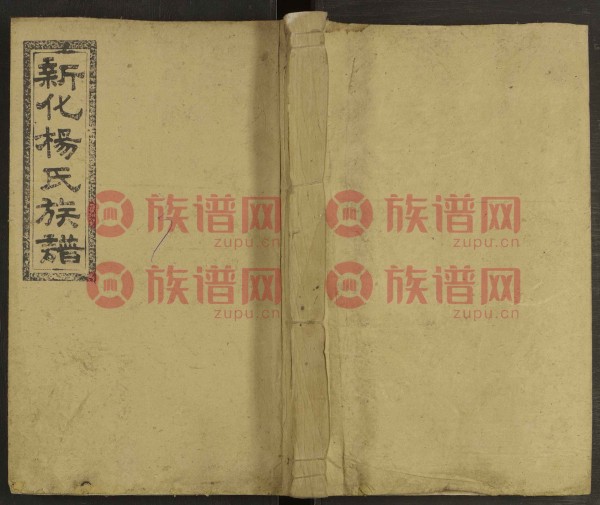 新化楊氏族譜
族谱网
zupu.cn
族谱网
zupu.cn
族谱网
zupu.cn
族谱网
zupu.cn